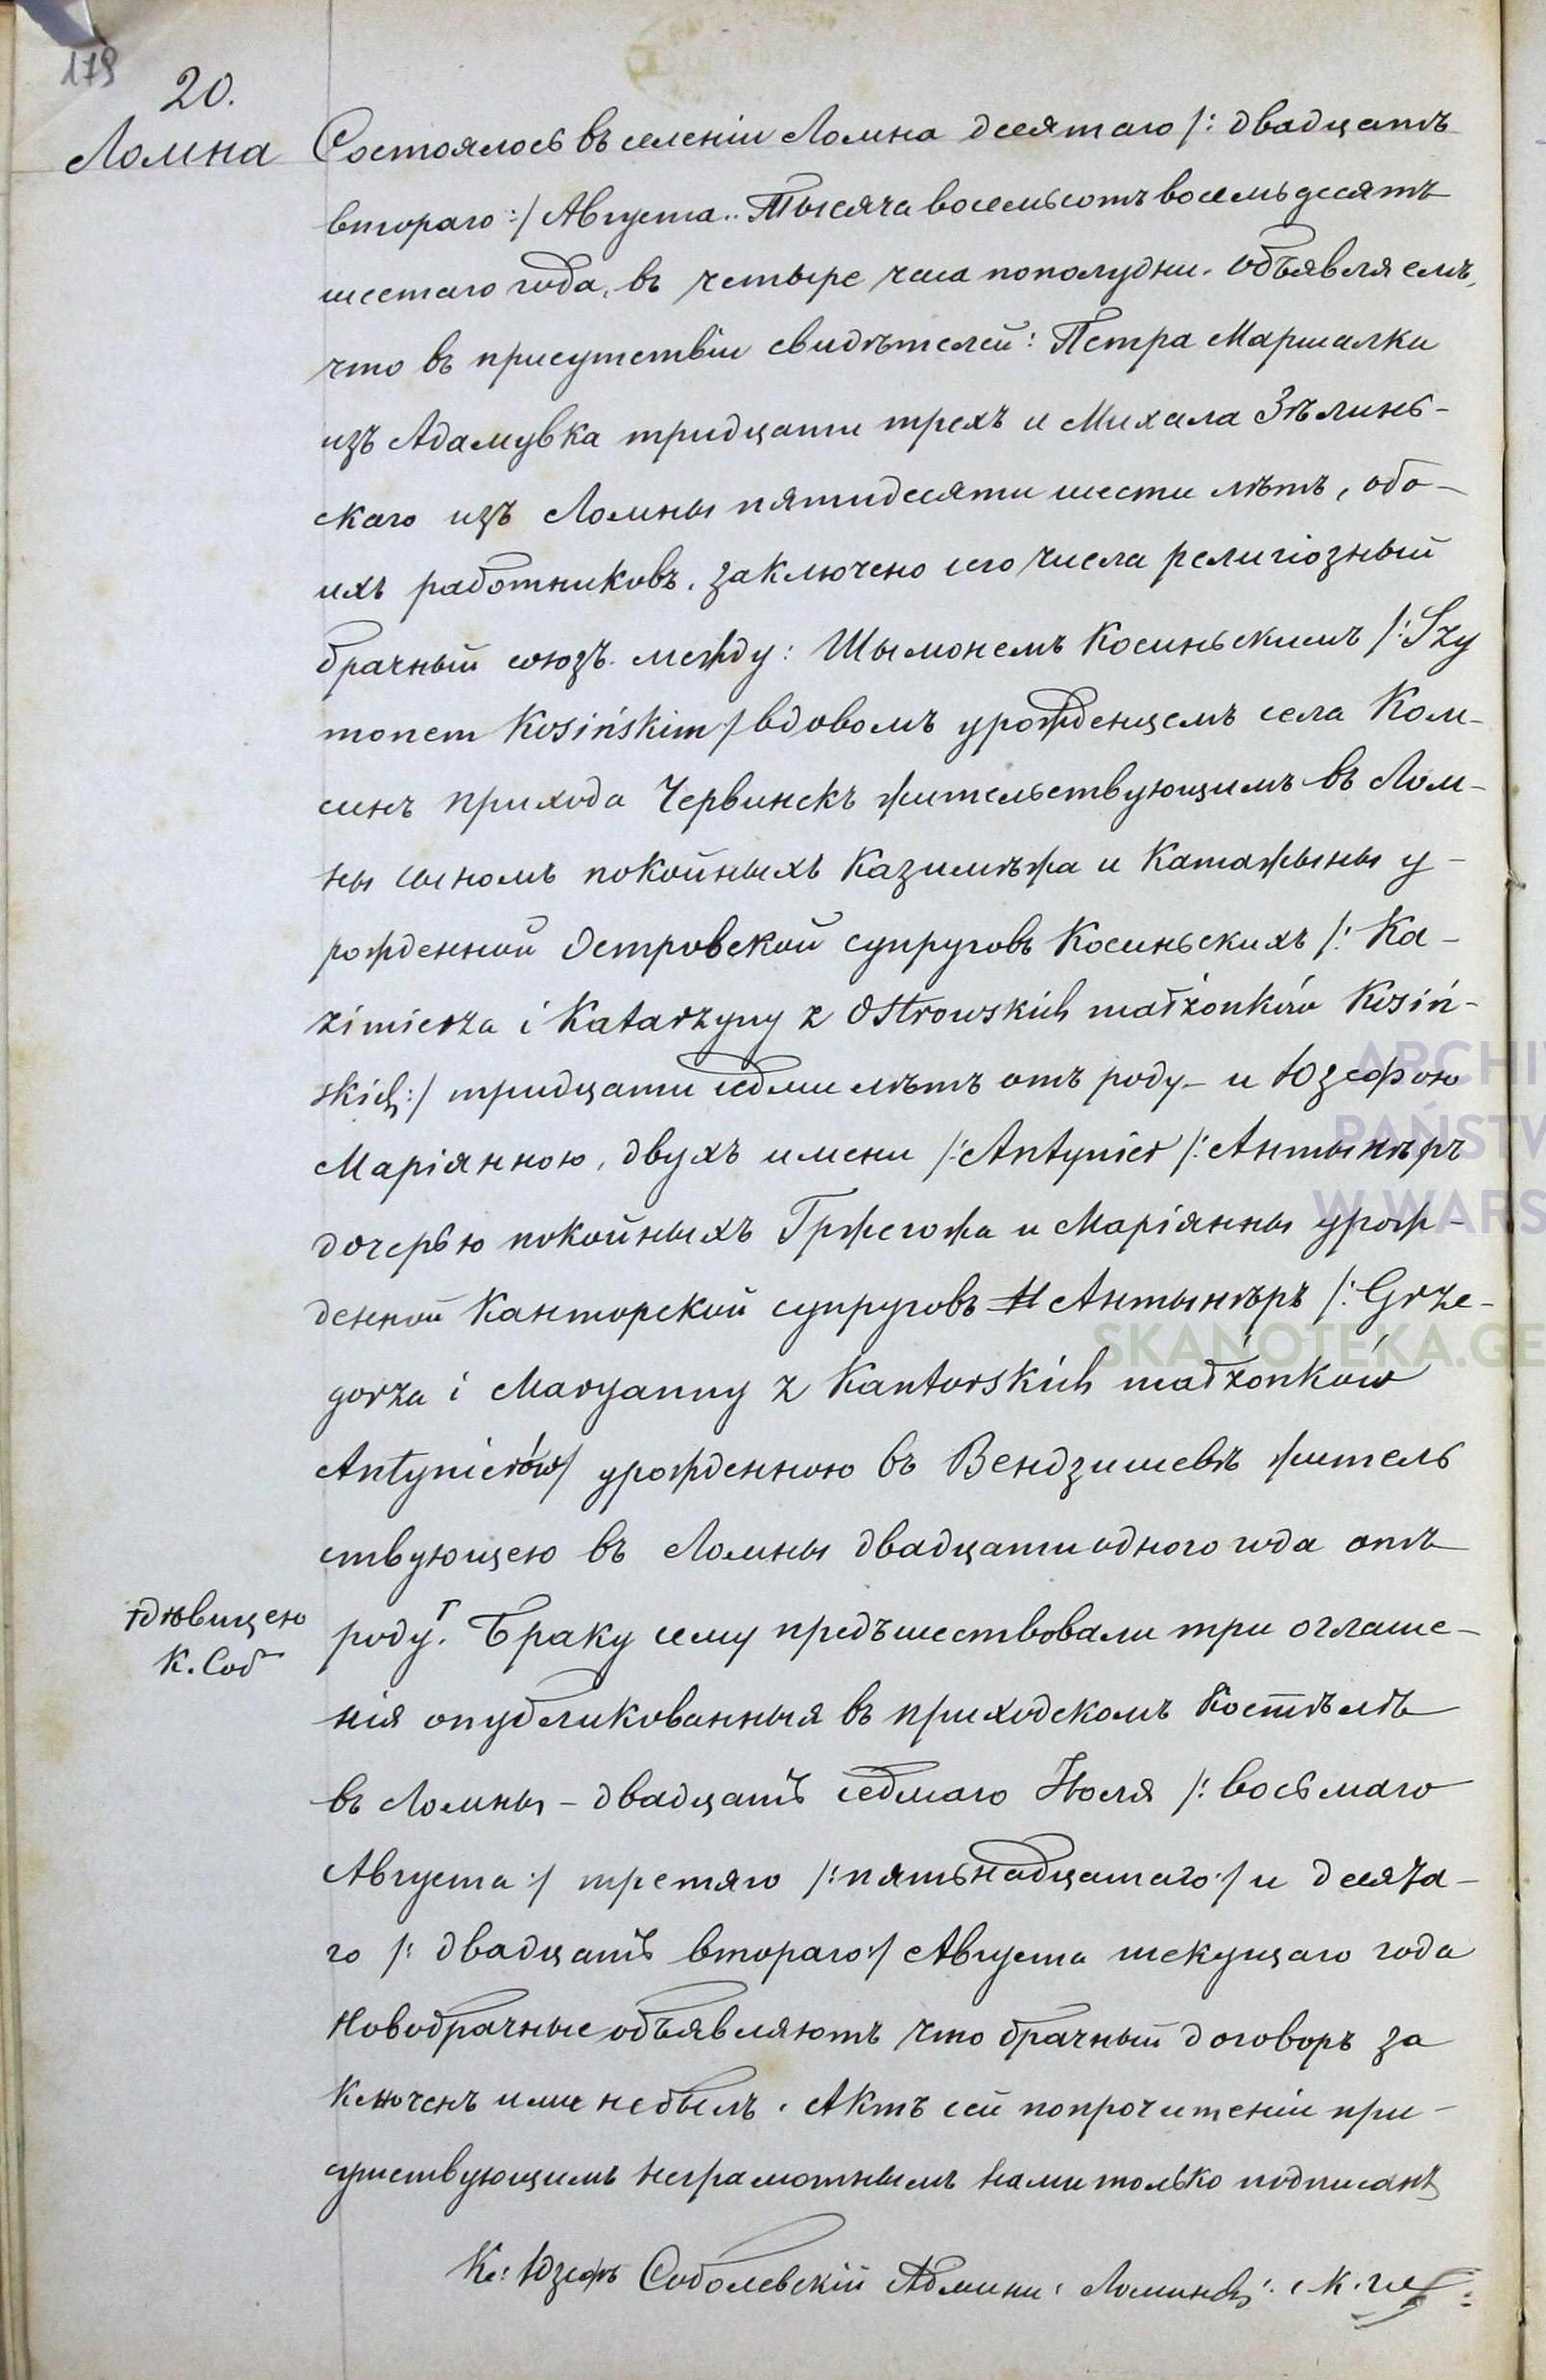 179
20.
Ломна
Состоялось въ селеніи Ломна десятаго /: двадцать
втораго :/ Августа.. Тысяча восемьсотъ восемьдесятъ
шестаго года, въ четыре часа пополудни. Объявляемъ,
что въ присутствіи свидѣтелей: Петра Маршалки
изъ Адамувка тридцати трехъ и Михала Зѣлинь-
скаго изъ Ломны пятидесяти шести лѣтъ, обо-
ихъ работниковъ. заключено сего числа религіозный
брачный союзъ. между: Шымонемъ Косиньскимъ /: Szy
monem Kosińskim / вдовомъ урожденцемъ села Ком-
синъ прихода Червинскъ жительствующимъ въ Лом-
ны сыномъ покойныхъ Казимѣжа и Катажыны у-
рожденной Островской супруговъ Косиньскихъ /: Ka-
zimierza i Katarzyny z Ostrowskich małżonków Kosiń-
skich :/ тридцати седми лѣтъ отъ роду – и Юзефою
Маріянною, двухъ имени /: Antynier /: Антынѣръ
дочерью покойныхъ Гржегожа и Маріянны урож-
денной Канторской супруговъ Антынѣръ /: Grze-
gorza i Maryanny z Kantorskich małżonków
Antynierów / урожденною въ Вендзишевѣ житель
ствующею въ Ломны двадцати одного года отъ
роду. Браку сему предъшествовали три оглаше-
нія опубликованныя въ приходскомъ Костѣлѣ
въ Ломны – двадцать седмаго Іюля /: восьмаго
Августа :/ третяго /: пятьнадцатаго :/ и десята-
го /: двадцать втораго :/ Августа текущаго года
Новобрачные объявляютъ что брачный договоръ за
ключенъ ими небылъ. Актъ сей попрочитеніи при-
сутствующимъ неграмотнымъ нами только подписанъ
Кс: Юзефъ Соболевскій Админи:
дѣвицею
К. Соб
ARCHIW
PAŃSTW
W WARS
SKANOTEKA.GE